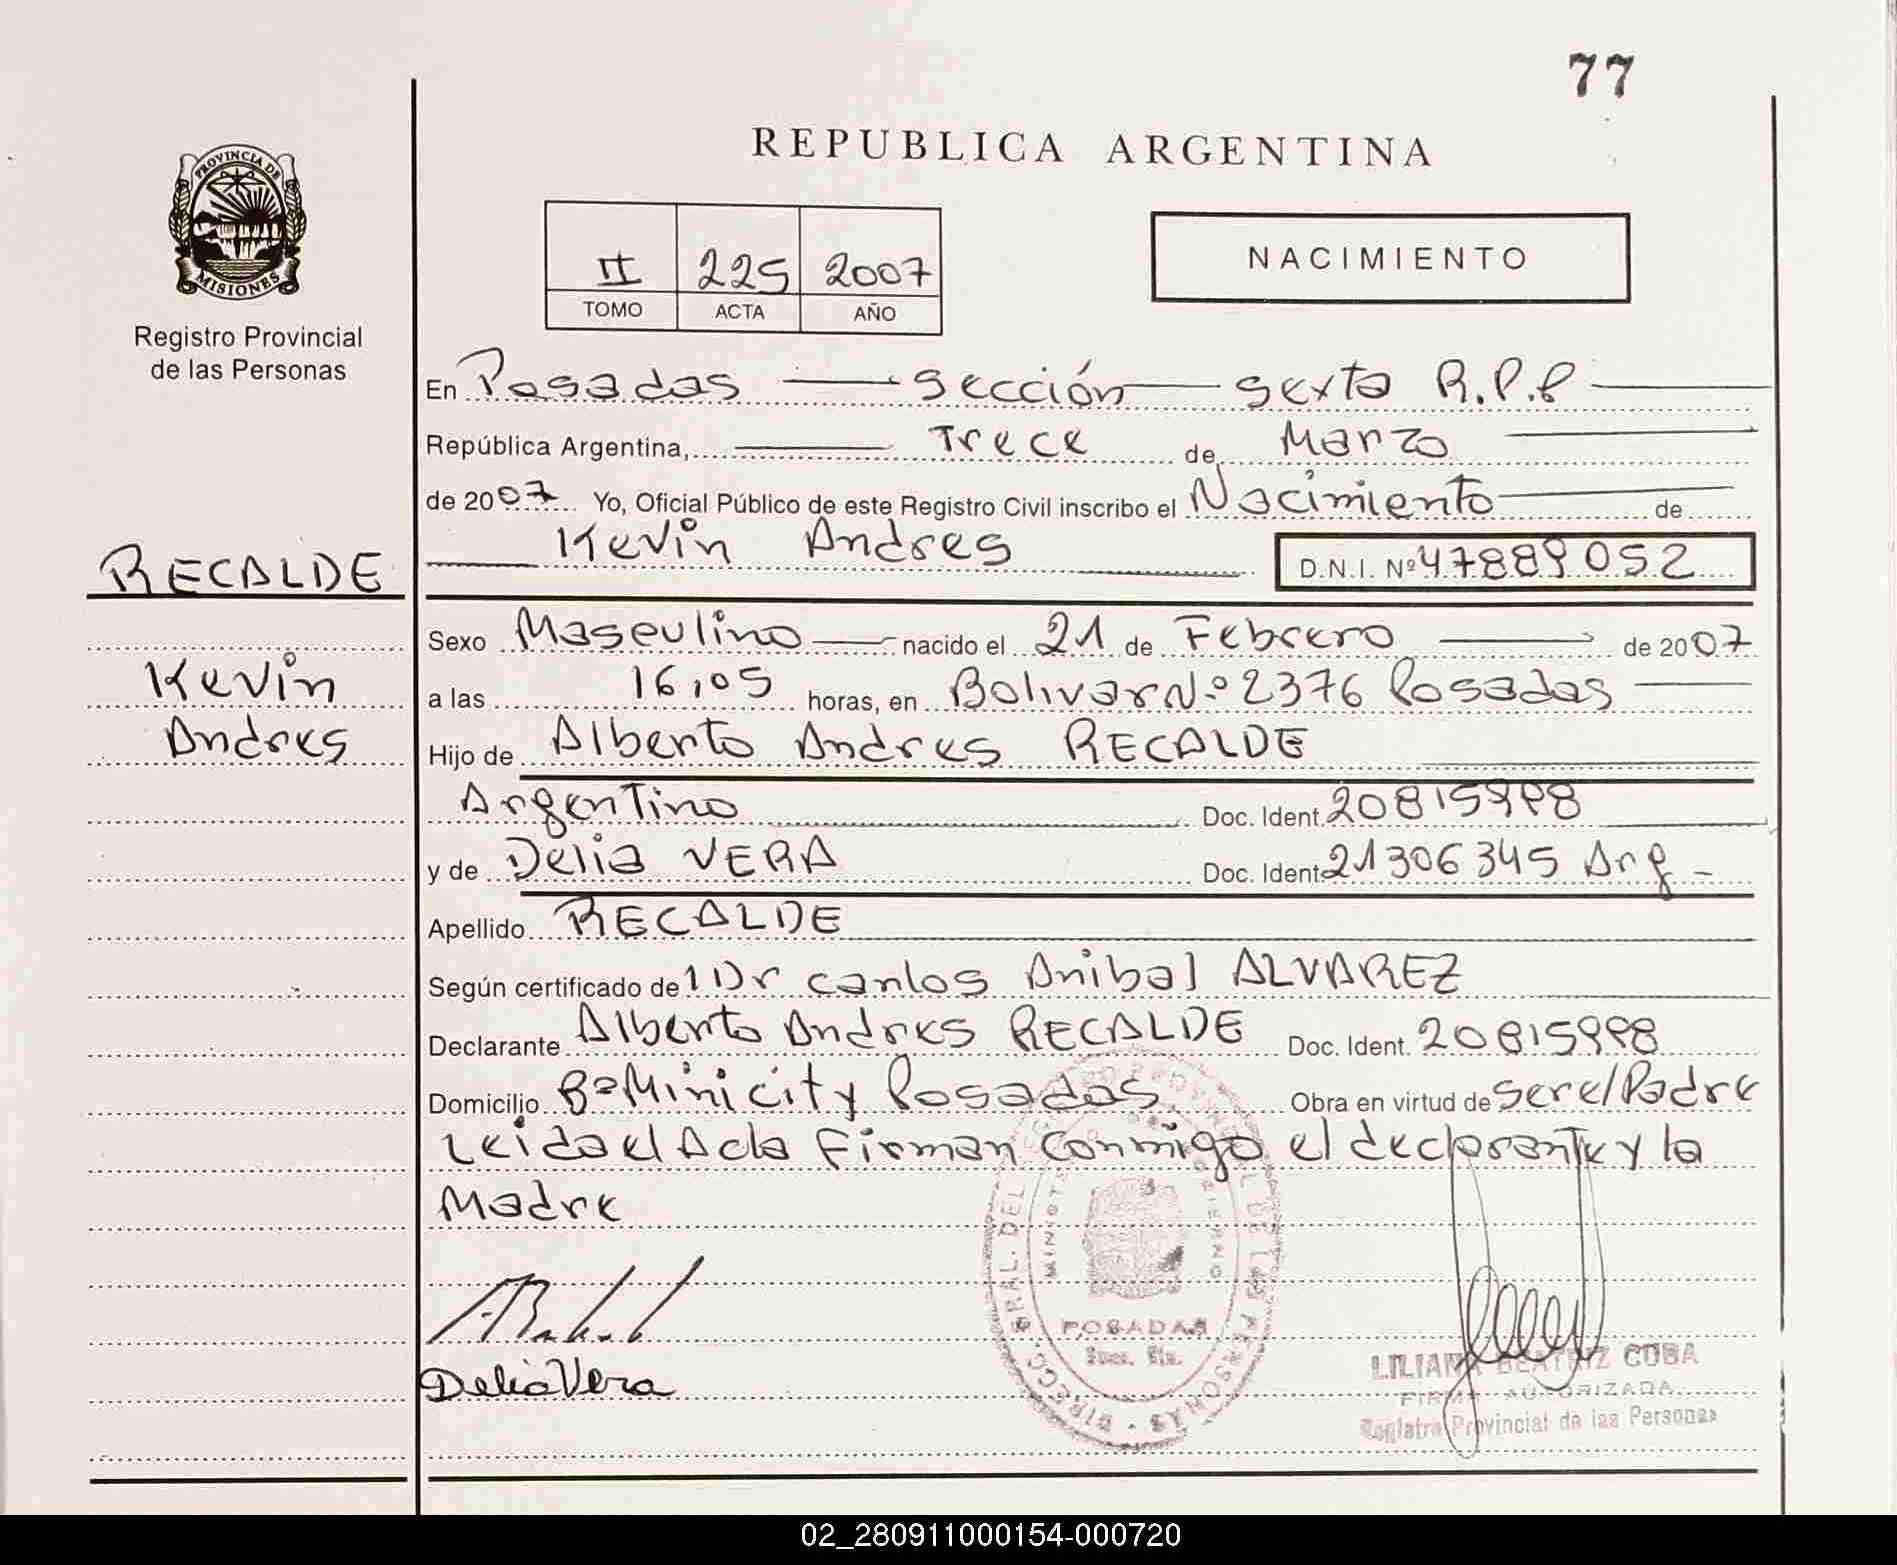 77
REPUBLICA ARGENTINA
PROVINCIA DE
MISIONES
Registro Provincial
de las Personas
II 225 2007
TOMO ACTA AÑO
NACIMIENTO
En Posadas sección sexta R.P.P
República Argentina, Trece de Marzo
de 2007 Yo, Oficial Público de este Registro Civil inscribo el Nacimiento de
Kevin Andres D.N.I. Nº 47889052
RECALDE
Kevin
Andres
Sexo Masculino nacido el 21 de Febrero de 2007
a las 16,05 horas, en Bolivar N.º 2376 Posadas
Hijo de Alberto Andres RECALDE
Argentino Doc. Ident. 20815998
y de Delia VERA Doc. Ident. 21306345 Arg -
Apellido RECALDE
Según certificado de l Dr Carlos Anibal ALVAREZ
Declarante Alberto Andres RECALDE Doc. Ident. 20815998
Domicilio Bº Minicity Posadas Obra en virtud de ser el Padre
Leida el Acta Firman conmigo el declarante y la
Madre
Delia Vera
DIRECC. GRAL. DEL DE LAS PERSONAS
POSADAS
LILIANA BEATRIZ CUBA
FIRMA AUTORIZADA
Registro Provincial de las Personas
02_280911000154-000720